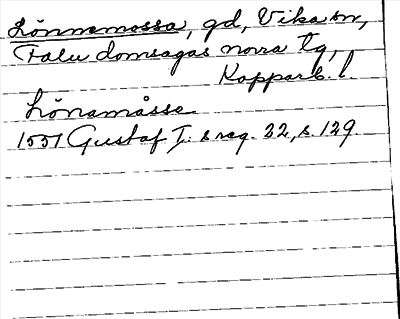 Lönnemossa, gd, Vika sn,
Falu domsagas norra tg,
Kopparb. l.
Lönamåsse
1551 Gustaf I:s reg. 22, s. 129